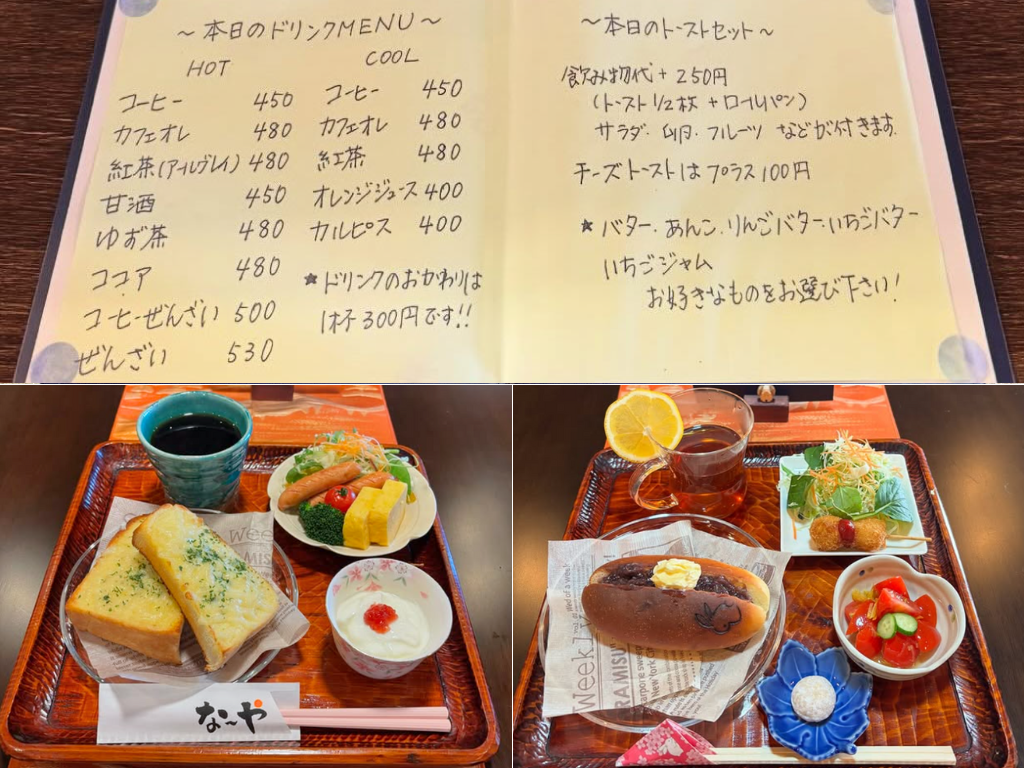 ～本日のドリンクMENU～
HOT
コーヒー 450
カフェオレ 480
紅茶(アールグレイ) 480
甘酒 450
ゆず茶 480
ココア 480
コーヒーぜんざい 500
ぜんざい 530
COOL
コーヒー 450
カフェオレ 480
紅茶 480
オレンジジュース 400
カルピス 400
★ドリンクのおかわりは
1杯300円です!!
～本日のトーストセット～
飲み物代+250円
(トースト1/2枚+ロールパン)
サラダ・卵・フルーツ などが付きます。
チーズトーストはプラス100円
★バター・あんこ・りんごバター・いちごバター
いちごジャム
お好きなものをお選び下さい!
Week
AMISU
な～や
Week
RAMISU
New York Ca